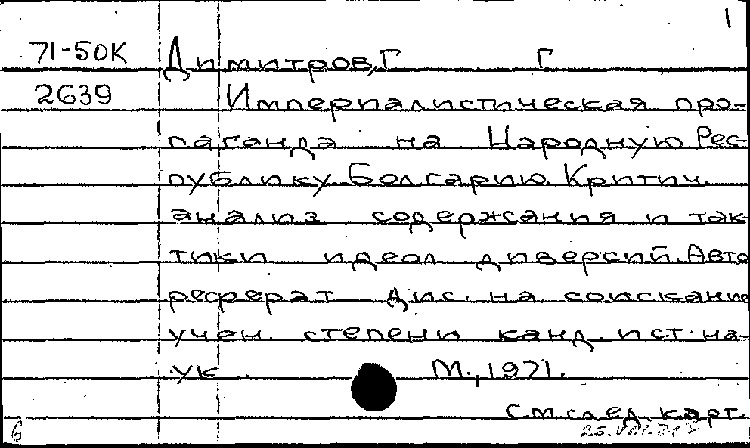 1
71-50К Димитров, Г Г
2639 Империалистическая про-
паганда на Народную Рес-
публику Болгарию. Критич.
анализ содержания и так-
тики идеол диверсий. Авто
реферат дис. на соискани
учен. степени канд. ист. на-
ук М., 1971.
См след. карт.
6